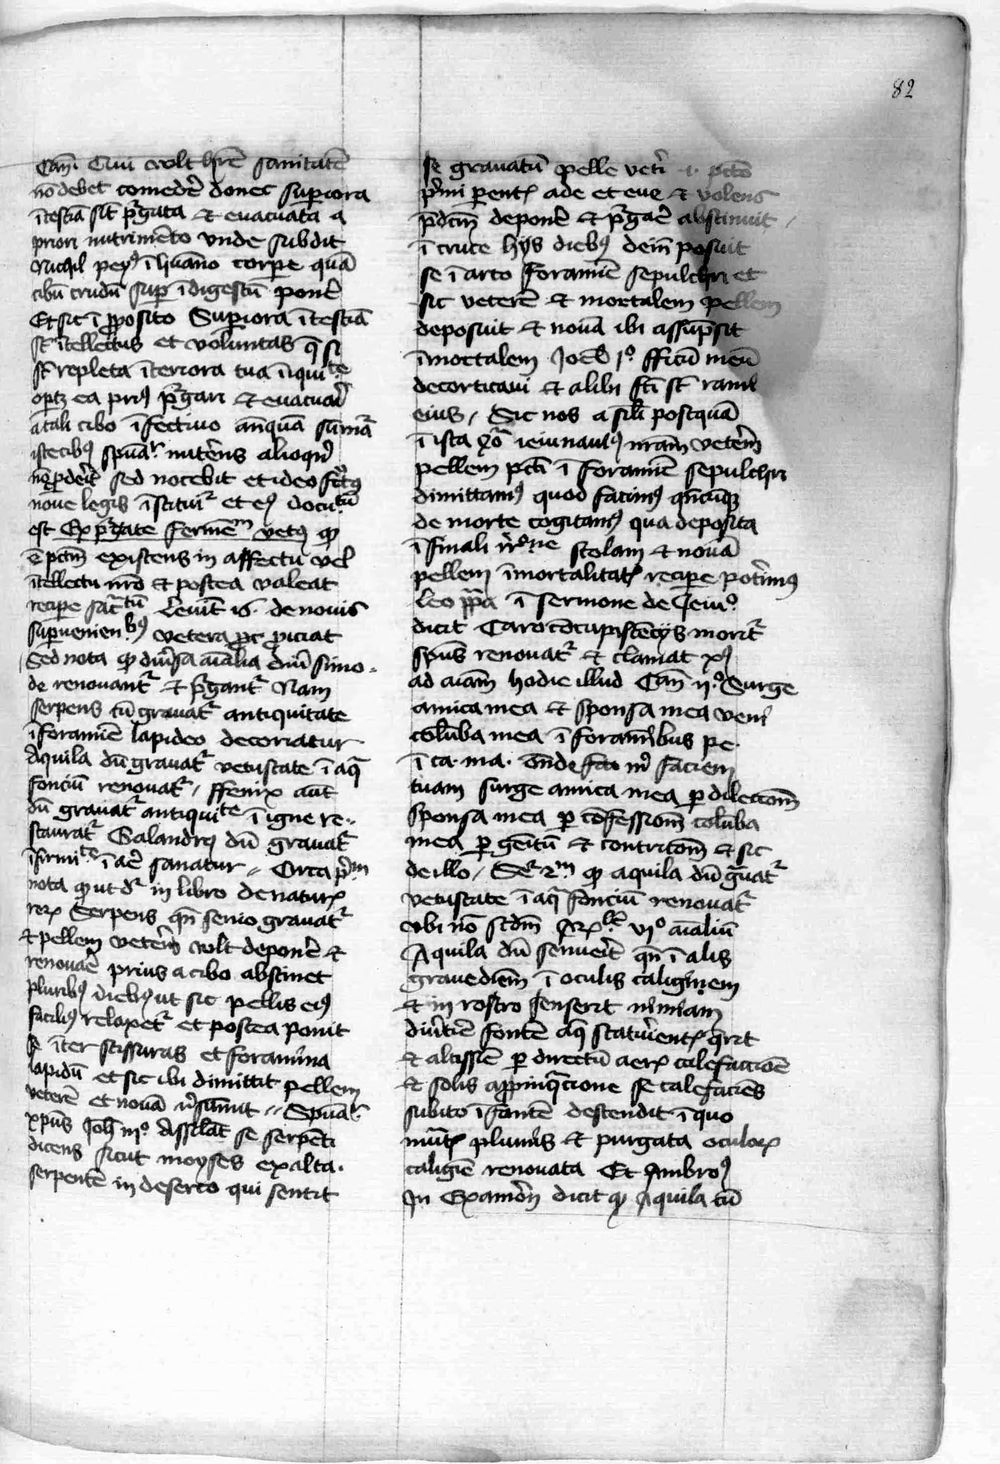 82
Cam̄. Qui vult hr̄e sanitatē
nō debet comedē donec superiora
ītestīa sīt p̄gata et euacuata a
priori nutrimēto vnde subdit
Nichil peyꝰ ī hūano corpore quā
cibū crudū super īdigestū ponē
Et sic ī proposito Superiora ītestīa
sūt ītellectus et voluntas q̄ si
sūt repleta īteriora tua īiquite
oportꝫ ea priꝰ p̄gari et euacuari
a tali cibo īfectiuo anq̄uā sumā
istecibꝰ spūal nutēns alioqn̄
nō proderit sed nocebit et ideo
noue legis īstituit et eiꝰ docutū
est Expurgate fermētm vetꝰ qꝫ
ē pctm̄ existens in affectu vel
ītellectu nr̄o et postea valeat
recipe sacrtū Leuit 26. de nouis
superuenienbꝰ vetera
Sed nota qꝫ diuersa aīalia diuersimo-
de renouant᷑ et p̄gant᷑ Nam
serpens cū grauat᷑ antiquitate
ī foramīe lapideo decoriatur
Aquila dū grauat᷑ vetustate ī aq̄
fonciū renouat᷑ / ffenix aut
dū grauat᷑ antiquite ī igne re-
staurat᷑ Galandrꝰ dū grauat᷑
īfirmite ī aer sanatur // Circa prm
nota qꝫ ut dr̄ in libro de naturꝫ
rerꝫ Serpens qn̄ senio grauat᷑
et pellem veterē vult deponē et
renouare prius a cibo abstinet
pluribꝰ diebꝰ ut sic pellis eiꝰ
faciliꝰ relaxet᷑ et postea ponit
se īter scissuras et foramīna
lapidū et sic ibi dimittit pellem
veterē et nouā resumit // Spūal
xp̄us Joh̄ iijº Assilat se serpēti
dicens sicut moyses exalta-
serpentē in deserto qui sentit
se grauatū pelle veteri .i. pctō
primi parentꝫ ade et eue et volens
p̄dcm̄ deponē et p̄gare abstinuit
ī cruce hijs diebꝰ deīn posuit
se ī arto foramīe sepulchri et
sic veterē et mortalem pellem
deposuit et nouā ibi assūpsit
īmortalem Joel 1º fficū meū
decorticaui et albi fc̄i sūt rami
eius / Sic nos a sīli postquā
ī ista xlª ieiunauimꝰ nram veterē
pellem pcti ī foramīe sepulchri
dimittamꝰ quod facimꝰ qn̄cūqꝫ
de morte cogitamꝰ qua deposita
ī finali resurrne stolam et nouā
pellem īmortalitatꝫ recipe poterimꝰ
Leo pp̄a ī sermone de Jeiuº
dicit Caro cōcupiscēcijs morit᷑
sp̄us renouat᷑ et clamat xpꝰ
ad aīam hodie illud Can̄ 2º Surge
amica mea et sponsa mea veni
colūba mea ī foramībus pe.
ī ca. ma. onde michi faciem
tuam surge amica mea per dilectiōm
sponsa mea per cōfessiom colūba
mea per gemitū et contritiom et sic
de illo / Scd 2m qꝫ aquila dū grauat᷑
vetustate ī aq̄ fonciū renouat᷑
vbi nō scdm̄ Arl vjº aīaliū
Aquila dū senuerit qn̄ ī alis
grauedīem ī oculis caligīnem
et in rostro senserit nimiam
diuertiē fontē aq̄ scaturientꝫ qrit
et altissīe per directū aerꝫ calefaccōē
et solis appropinq̄cione se calefaciēs
subito ī fontē descendit ī quo
mutꝫ plumīs et purgata oculorꝫ
caligīe renouata Et Ambroꝰ
In Examerōn dicit qꝫ Aquila cū